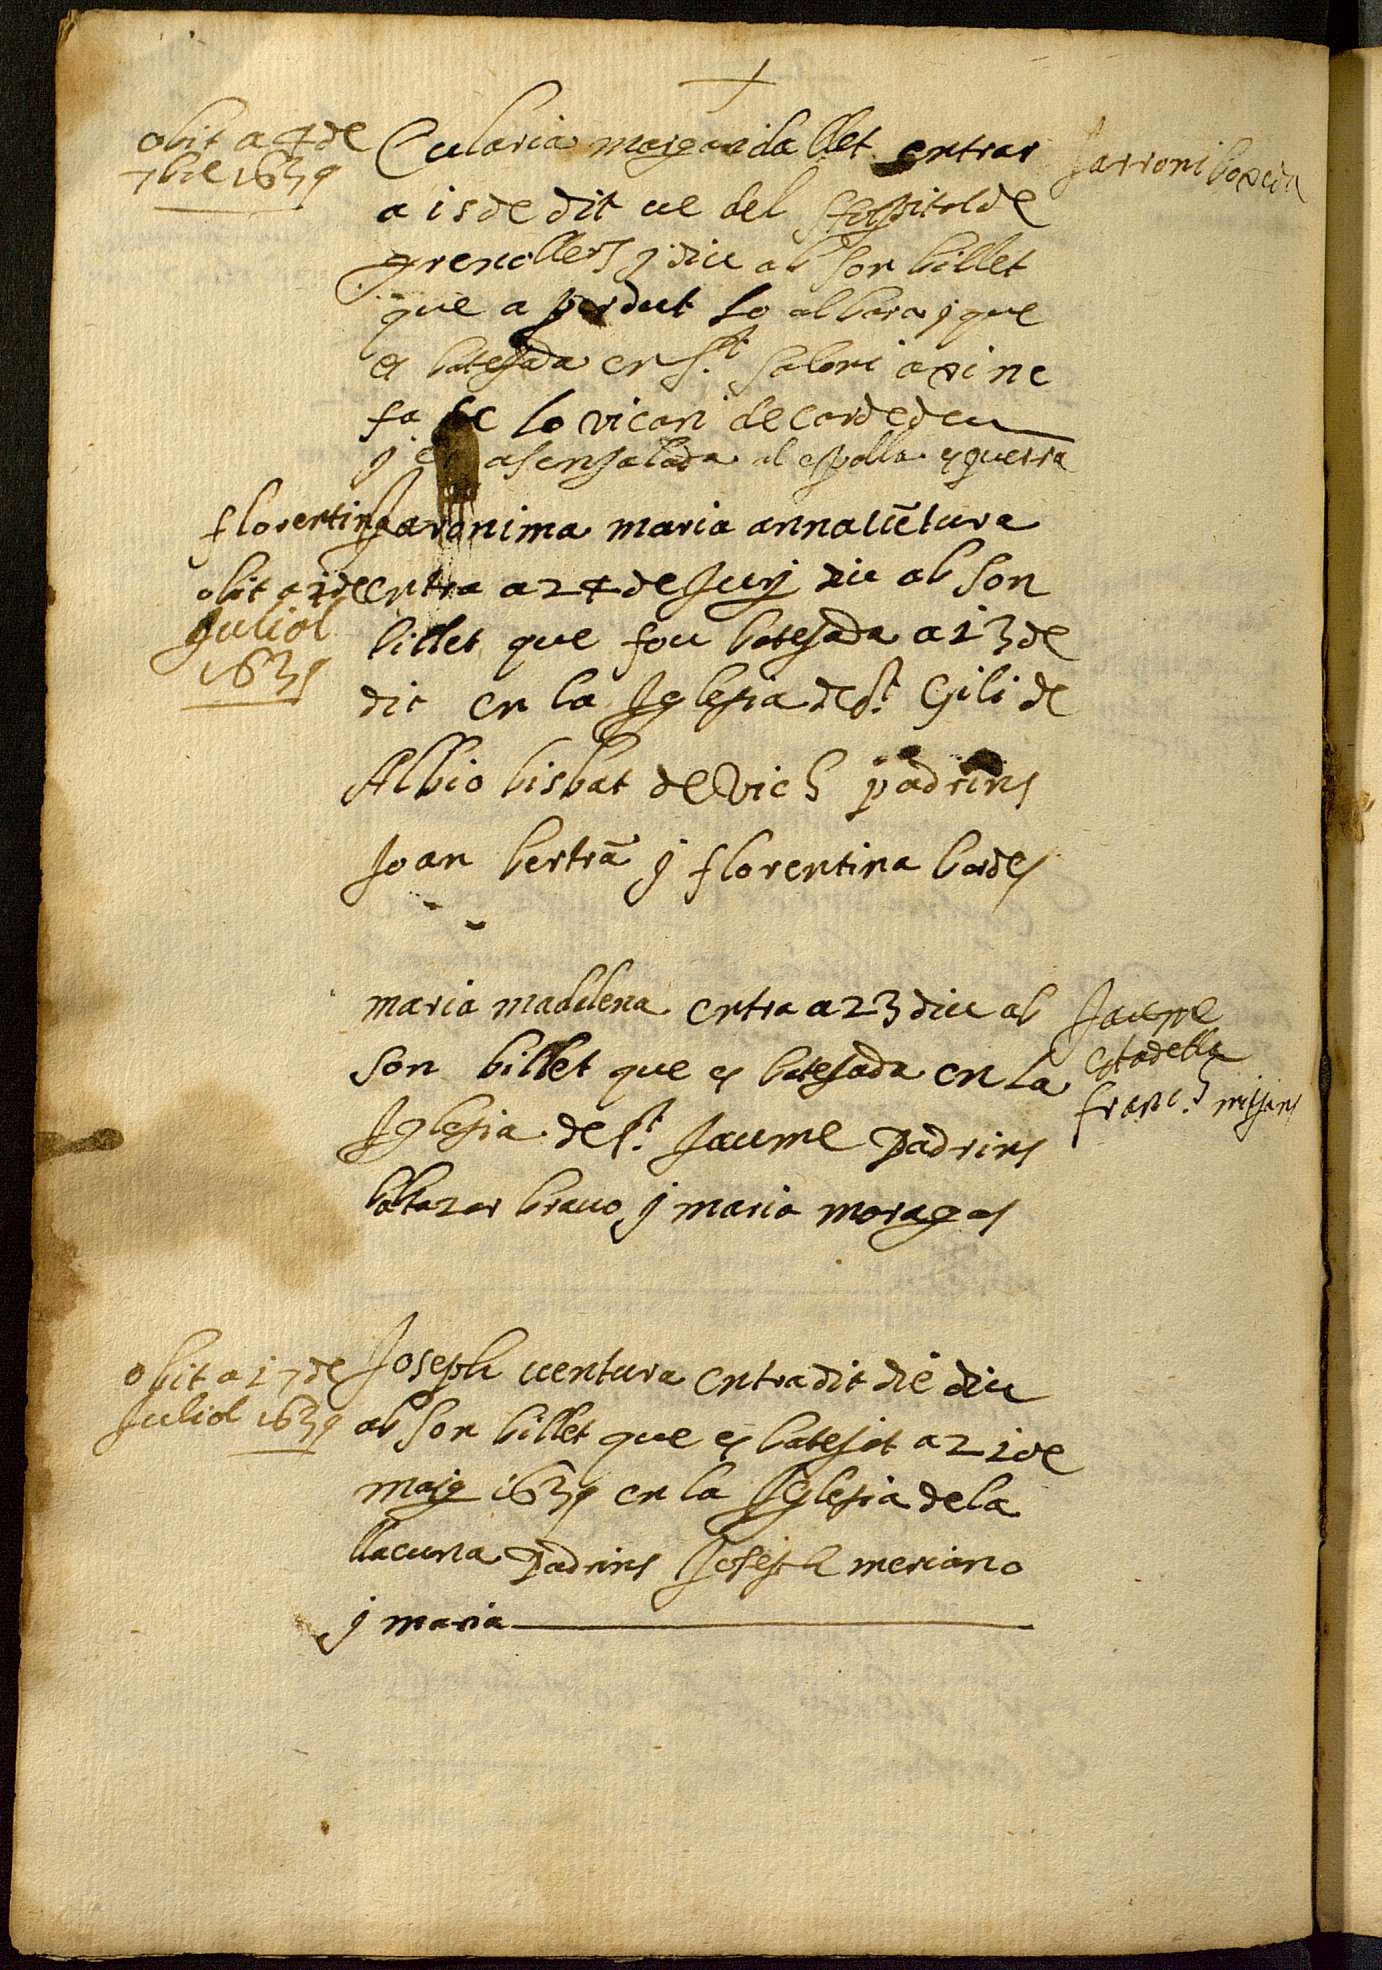 obit a 4 de
7bre 1639
Eularia margarida llet entrar
a is de dit ve del spital de
grenollers y diu ab son billet
que a perdut lo albara y que
es batejada en st. Saloni axi ne
fa fe lo vicari de cardedeu
y es asenyalada al espalla esquerra
Jarroni boxeda
florentina
obit a 2 de
Juliol
1639
Jaronima maria anna vētura
entra a 24 de Juny diu ab son
billet que fou batejada a 13 de
dit en la Iglesia de st. Gili de
Albio bisbat de Vich padrins
Joan bertrā y florentina bordes
maria madalena entra a 23 diu ab
son billet que es batejada en la
Iglesia de st. Jaume Padrins
baltazar bravo y maria moragas
Jaume
estadella
franc.h mitjans
obit a 17 de
Juliol 1639
Joseph ventura entra dit die diu
ab son billet que es batejat a 21 de
maig 1639 en la Iglesia de la
llacuna Padrins Joseph meriano
y maria